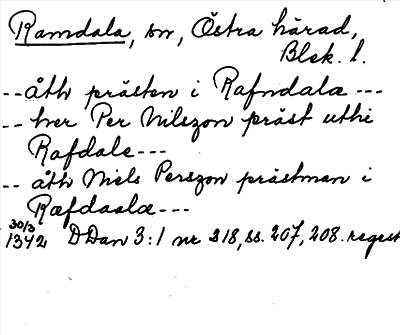 Ramdala, sn, Östra härad,
Blek. l.
-- åth prästen i Rafndala ---
-- her Per Nilszon präst uthi
Rafdale ---
-- åth Niels Perszon prästman i
Ræfdaala ---
30/3
1342 DDan 3:1 nr 218, ss. 207, 208. regest